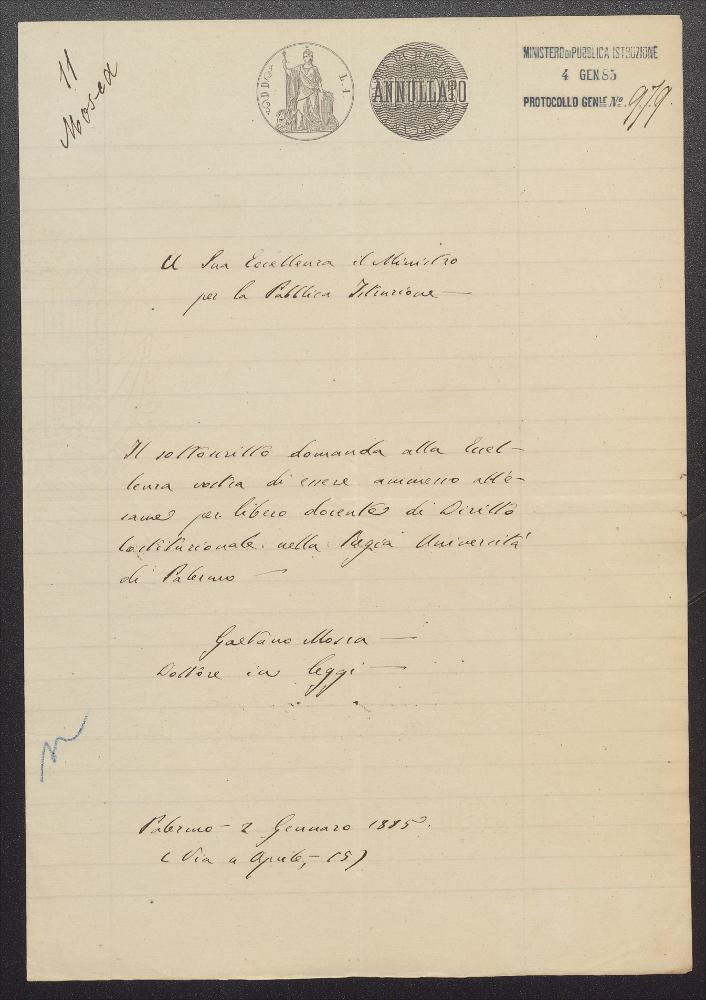 11
Mosca
L. 1.
ANNULLATO
MINISTERO DI PUBBLICA ISTRUZIONE
4 GEN 85
PROTOCOLLO GENLE No. 979.
A Sua Eccellenza il Ministro
per la Pubblica Istruzione —
Il sottoscritto domanda alla Eccel-
lenza vostra di essere ammesso all'e-
same per libero docente di Diritto
Costituzionale nella Regia Università
di Palermo —
Gaetano Mosca —
Dottore in leggi —
Palermo - 2 Gennaro 1885.
( Via 4 Aprile, - 15 )